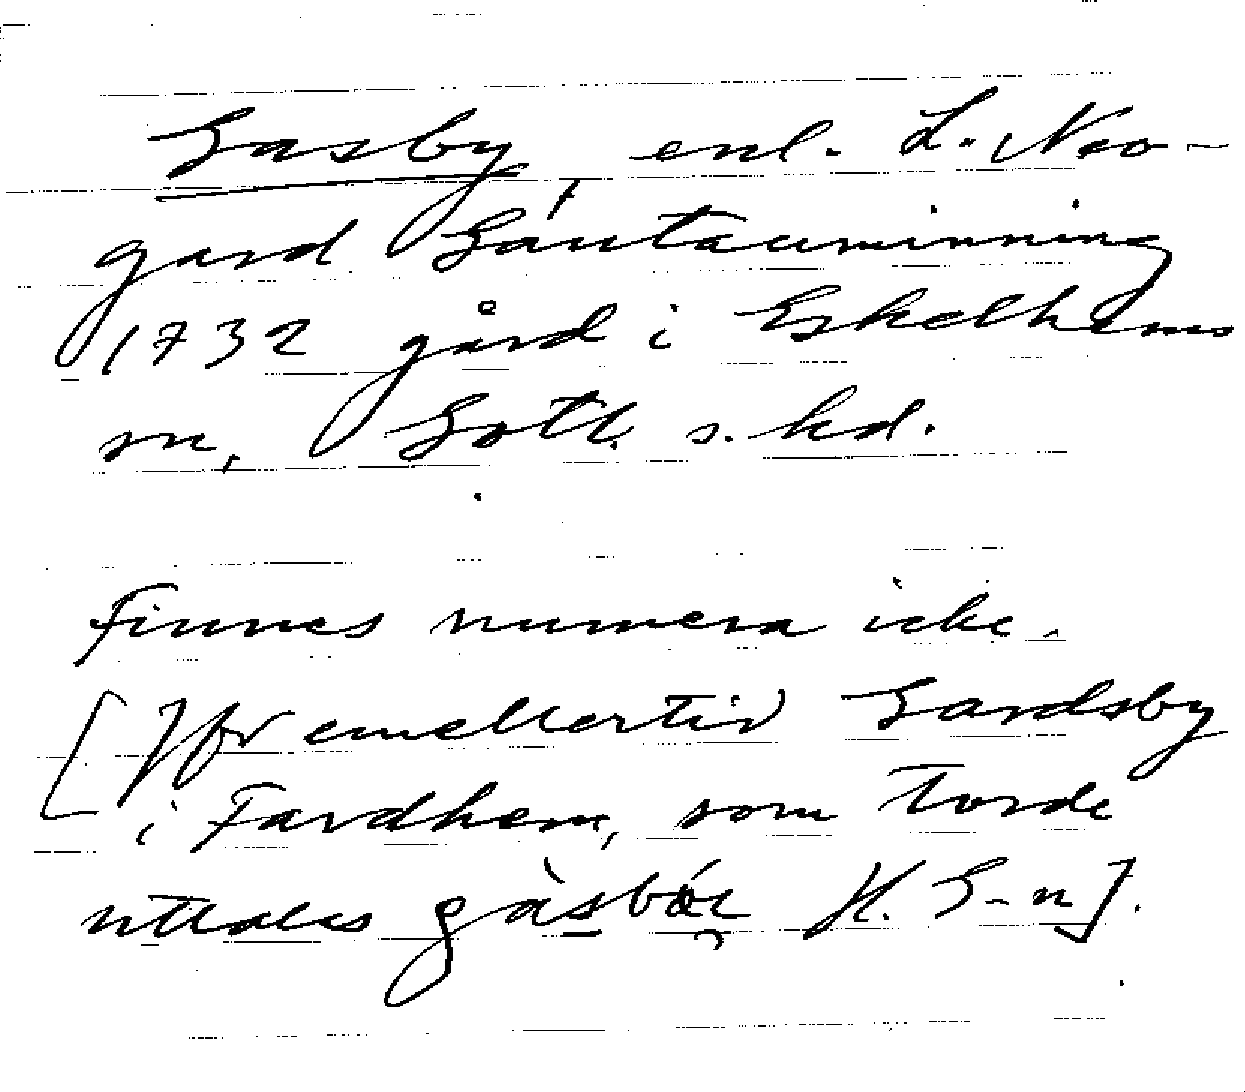 Gasby enl. L. Neo-
gard Gautauminning
1732 gård i Eskelhems
sn, Gotl. s. hd.
Finnes numera icke.
[Jfr emellertid Gardsby
i Fardhem, som torde
uttalas H. G-n].